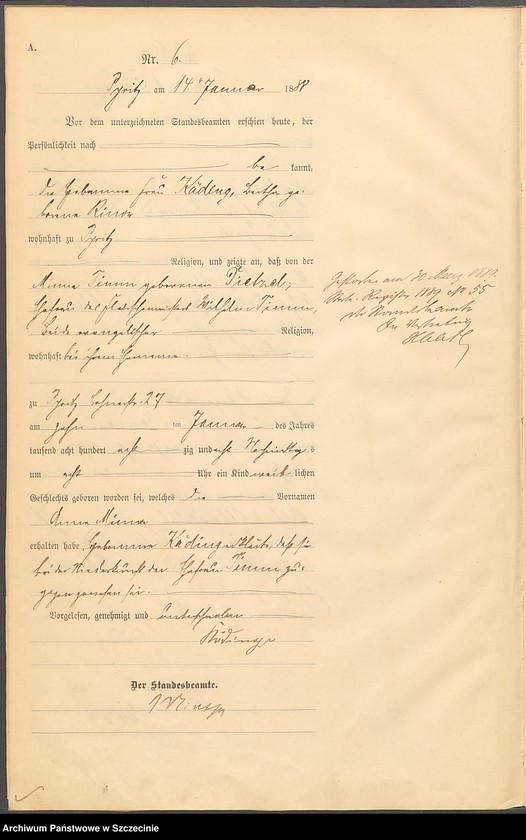 A.
Nr. 6.
Pyritz am 14. Januar 1888
Vor dem unterzeichneten Standesbeamten erschien heute, der
Persönlichkeit nach
be kannt,
die Hebamme Frau Käding, Bertha ge-
borene
wohnhaft zu Pyritz
Religion, und zeigte an, daß von der
Minna Timm geborenen
Ehefrau des Wilhelm Timm,
beide evangelischer Religion,
wohnhaft bei ihrem Ehemanne
zu Pyritz 27
am zehn ten Januar des Jahres
tausend acht hundert acht zig und acht Nachmittags
um acht Uhr ein Kind weib lichen
Geschlechts geboren worden sei, welches die Vornamen
Anna Minna
erhalten habe. Hebamme Käding erklärte, daß sie
bei der Niederkunft der Ehefrau Timm zu-
gegen gewesen sei.
Vorgelesen, genehmigt und unterschrieben
Käding
Der Standesbeamte.
Gestorben am 1889.
Register 1889 No 55
Der Standesbeamte
In Vertretung
Archiwum Państwowe w Szczecinie